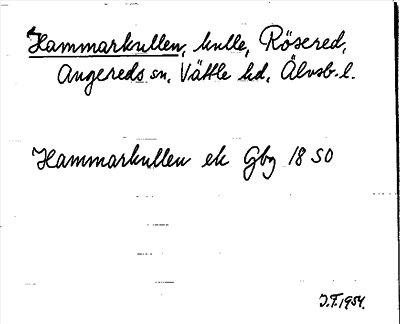 Hammarkullen, kulle, Rösered,
Angereds sn, Vättle hd, Älvsb. l.
Hammarkullen ek Gbg 18 SO
J.F. 1954.